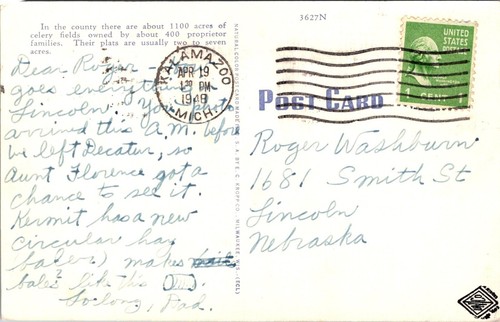 In the county there are about 1100 acres of
celery fields owned by about 400 proprietor
families. Their plats are usually two to seven
acres.
Dear Roger -
goes everything
Lincoln. Your
arrived this A.M. before
we left Decatur, so
Aunt Florence got a
chance to see it.
Kermit has a new
circular hay
baler) makes
bales like this
So long, Dad.
3627N
KALAMAZOO
APR 19
PM
1948
MICH.
UNITED
STATES
POSTAGE
1 CENT 1
POST CARD
Roger Washburn
1681 Smith St
Lincoln
Nebraska